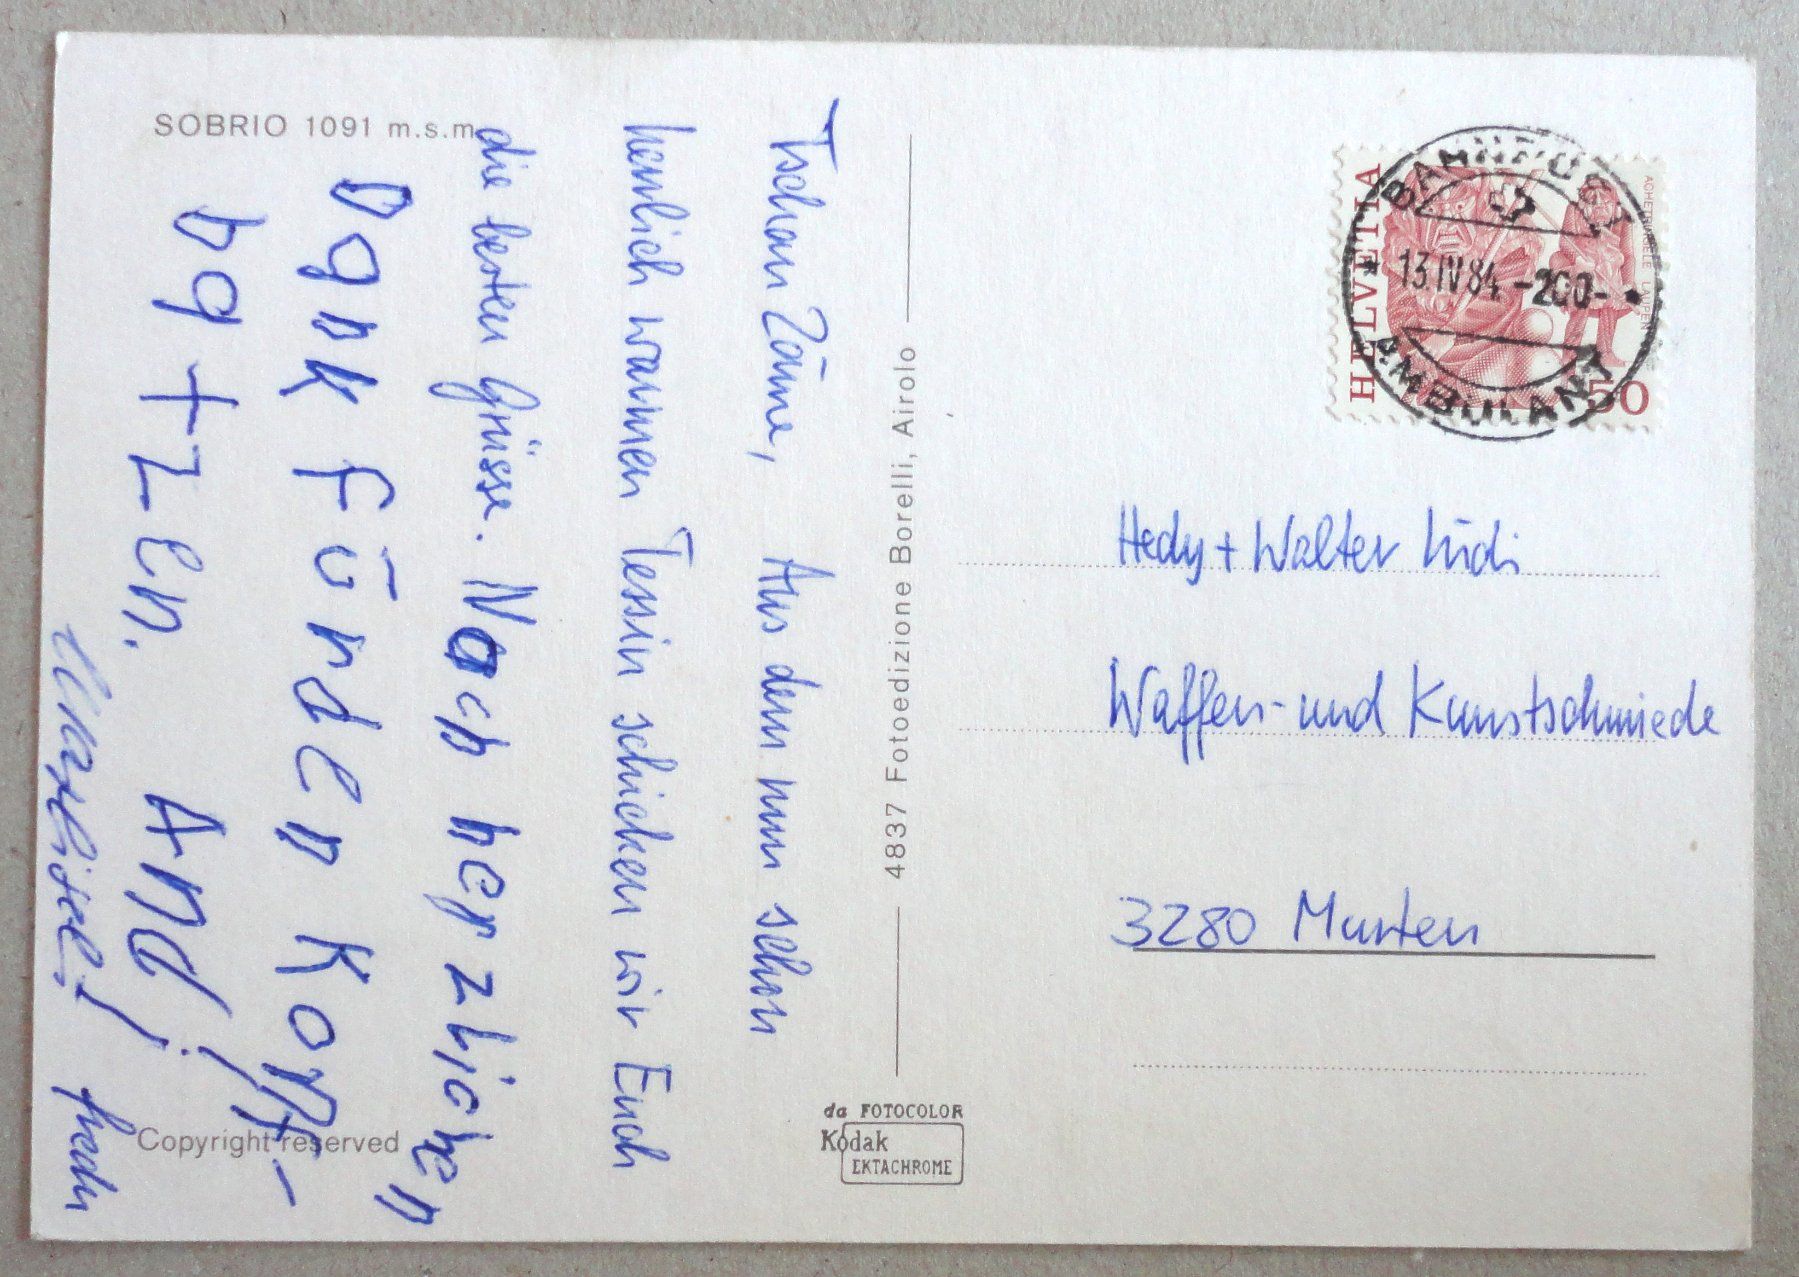 SOBRIO 1091 m.s.m.
Tschau Zäme, Aus dem nun schon
herrlich warmen Tessin schicken wir Euch
die besten Grüsse. Noch herzlichen
Dank für den Korff-
ba+zen. And!
fredu
Copyright reserved
4837 Fotoedizione Borelli, Airolo
da FOTOCOLOR
Kodak
EKTACHROME
HELVETIA
50
BAHNPOST
13.IV 84 -200-
AMBULANT
Hedy + Walter Lüdi
Waffen- und Kunstschmiede
3280 Murten